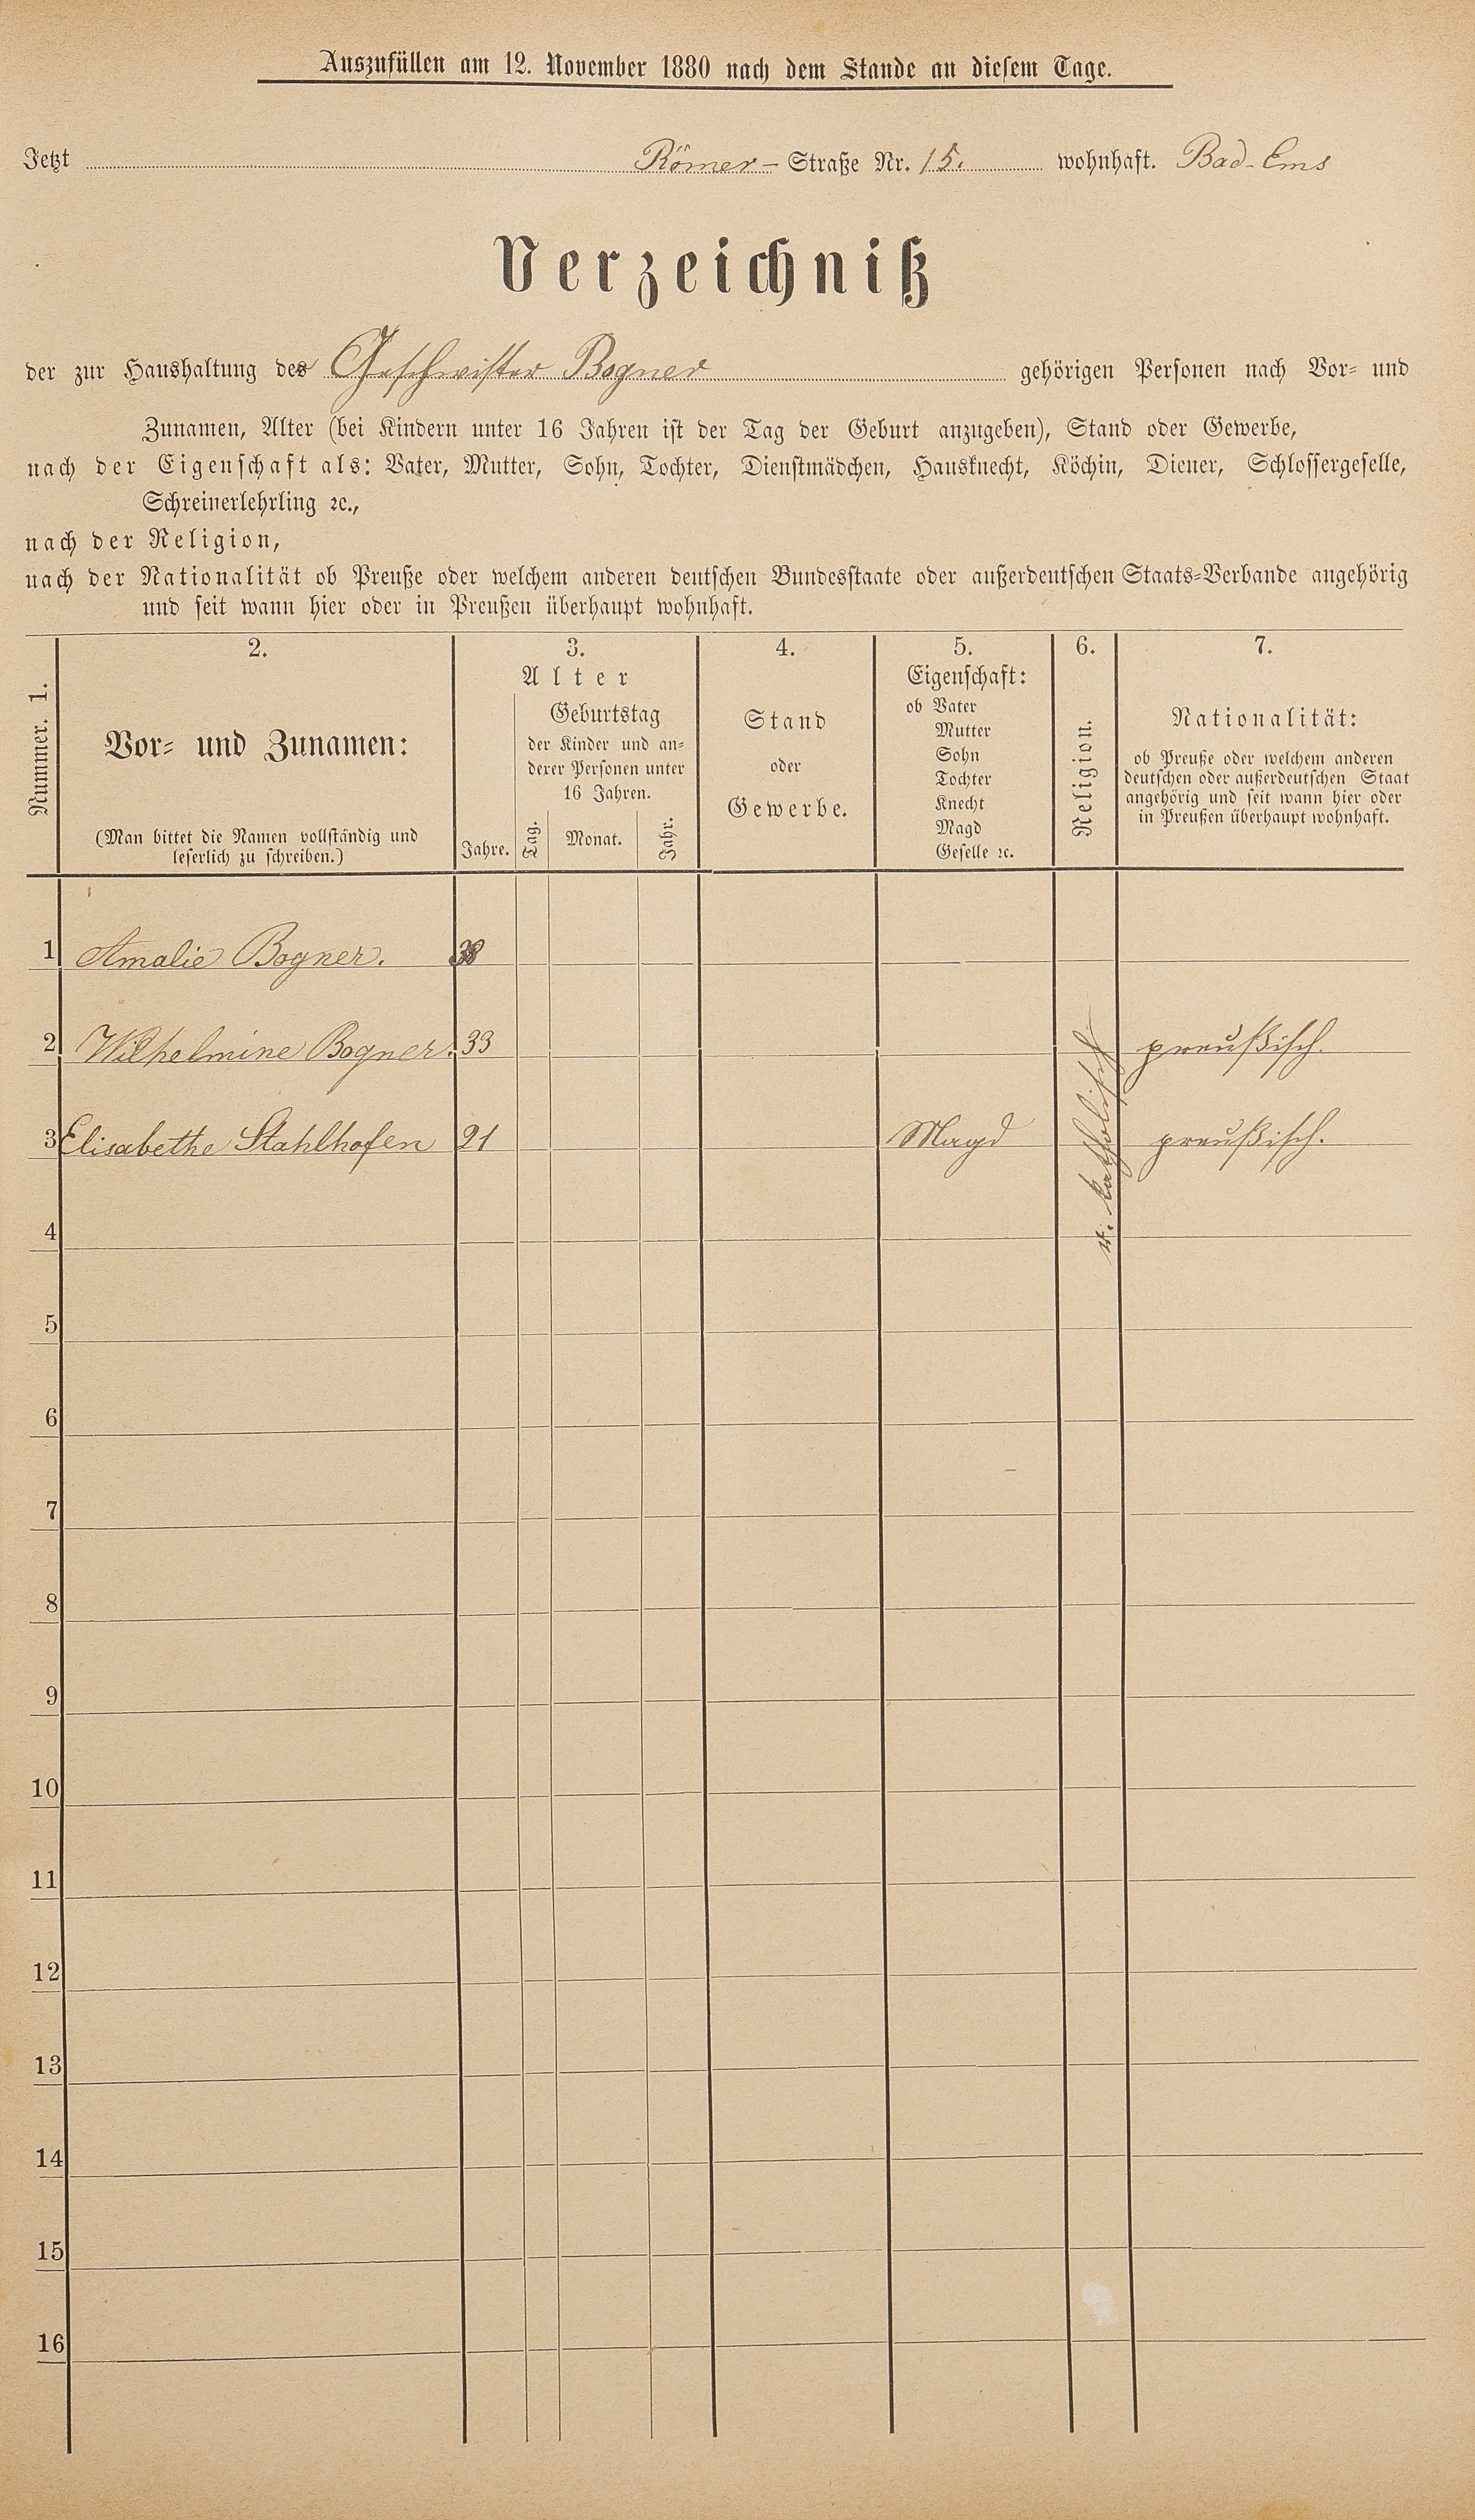 Auszufüllen am 12. November 1880 nach dem Stande an diesem Tage.
Jetzt Römer- Straße Nr. 15. wohnhaft. Bad-Ems
Verzeichniß
der zur Haushaltung der Geschwister Bogner gehörigen Personen nach Vor- und
Zunamen, Alter (bei Kindern unter 16 Jahren ist der Tag der Geburt anzugeben), Stand oder Gewerbe,
nach der Eigenschaft als: Vater, Mutter, Sohn, Tochter, Dienstmädchen, Hausknecht, Köchin, Diener, Schlossergeselle,
Schreinerlehrling ꝛc.,
nach der Religion,
nach der Nationalität ob Preuße oder welchem anderen deutschen Bundesstaate oder außerdeutschen Staats-Verbande angehörig
und seit wann hier oder in Preußen überhaupt wohnhaft.
Nummer. 1.
2.
Vor- und Zunamen:
(Man bittet die Namen vollständig und
leserlich zu schreiben.)
3.
Alter
Jahre.
Geburtstag
der Kinder und an-
derer Personen unter
16 Jahren.
Tag. Monat. Jahr.
4.
Stand
oder
Gewerbe.
5.
Eigenschaft:
ob Vater
Mutter
Sohn
Tochter
Knecht
Magd
Geselle ꝛc.
6.
Religion.
7.
Nationalität:
ob Preuße oder welchem anderen
deutschen oder außerdeutschen Staat
angehörig und seit wann hier oder
in Preußen überhaupt wohnhaft.
1 Amalie Bogner. 38
2 Wilhelmine Bogner. 33 preußisch.
3 Elisabethe Stahlhofen 21 Magd preußisch.
katholisch
4
5
6
7
8
9
10
11
12
13
14
15
16